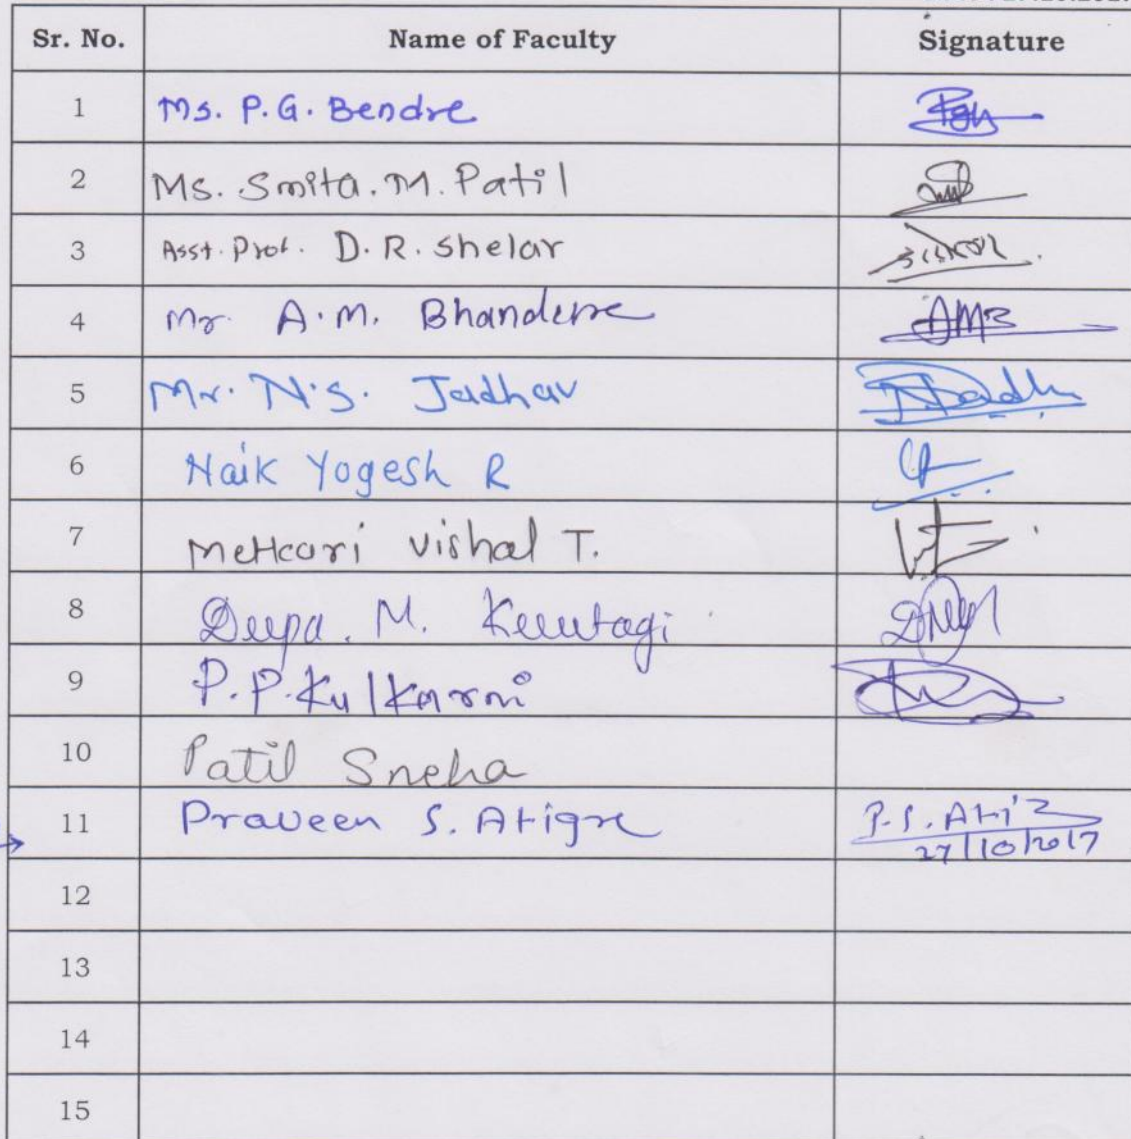 Sr. No. Name of Faculty Signature
1 Ms. P.G. Bendre
2 Ms. Smita. M. Patil
3 Asst. Prof. D.R. Shelar
4 Mr. A.M. Bhandere AMB
5 Mr. N.S. Jadhav
6 Naik Yogesh R
7 Vishal T.
8 Deepa. M.
9 P.P. Kulkarni
10 Patil Sneha
11 Praveen S. Atigre P.S.
27/10/2017
12
13
14
15